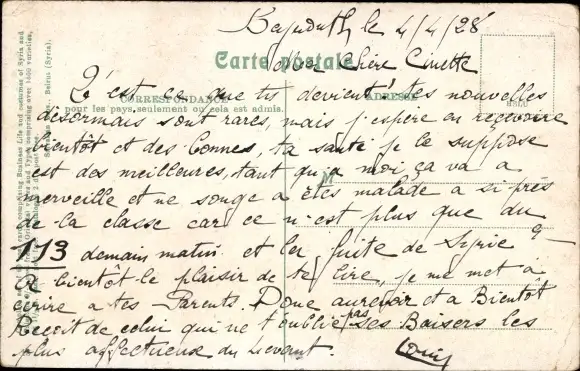 Beyrouth le 4/4/28
Carte postale
Chère Cinette
Qu'est ce que tu devient, tes nouvelles
CORRESPONDANCE
ADRESSE
pour les pays, seulement où cela est admis.
désormais sont rares, mais j'espère en reçevoire
bientôt et des bonnes, ta santé je le suppose
est des meilleures, tant qu'a moi, ça va a
merveille et ne songe a êtes malade a si près
de la classe car ce n'est plus que du
113 demain matin. et la fuite de Syrie
A bientôt le plaisir de te lire, je me met à
écrire a tes Parents. Donc aurevoir et a Bientôt
Reçoit de celui qui ne t'oublie pas ses Baisers les
plus affectueuse du Levant.
Louis